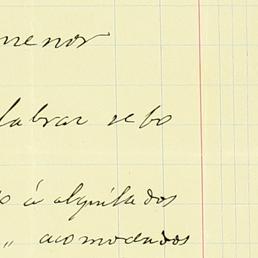 menor
labrar sebo
o á alquilados
" acomodados